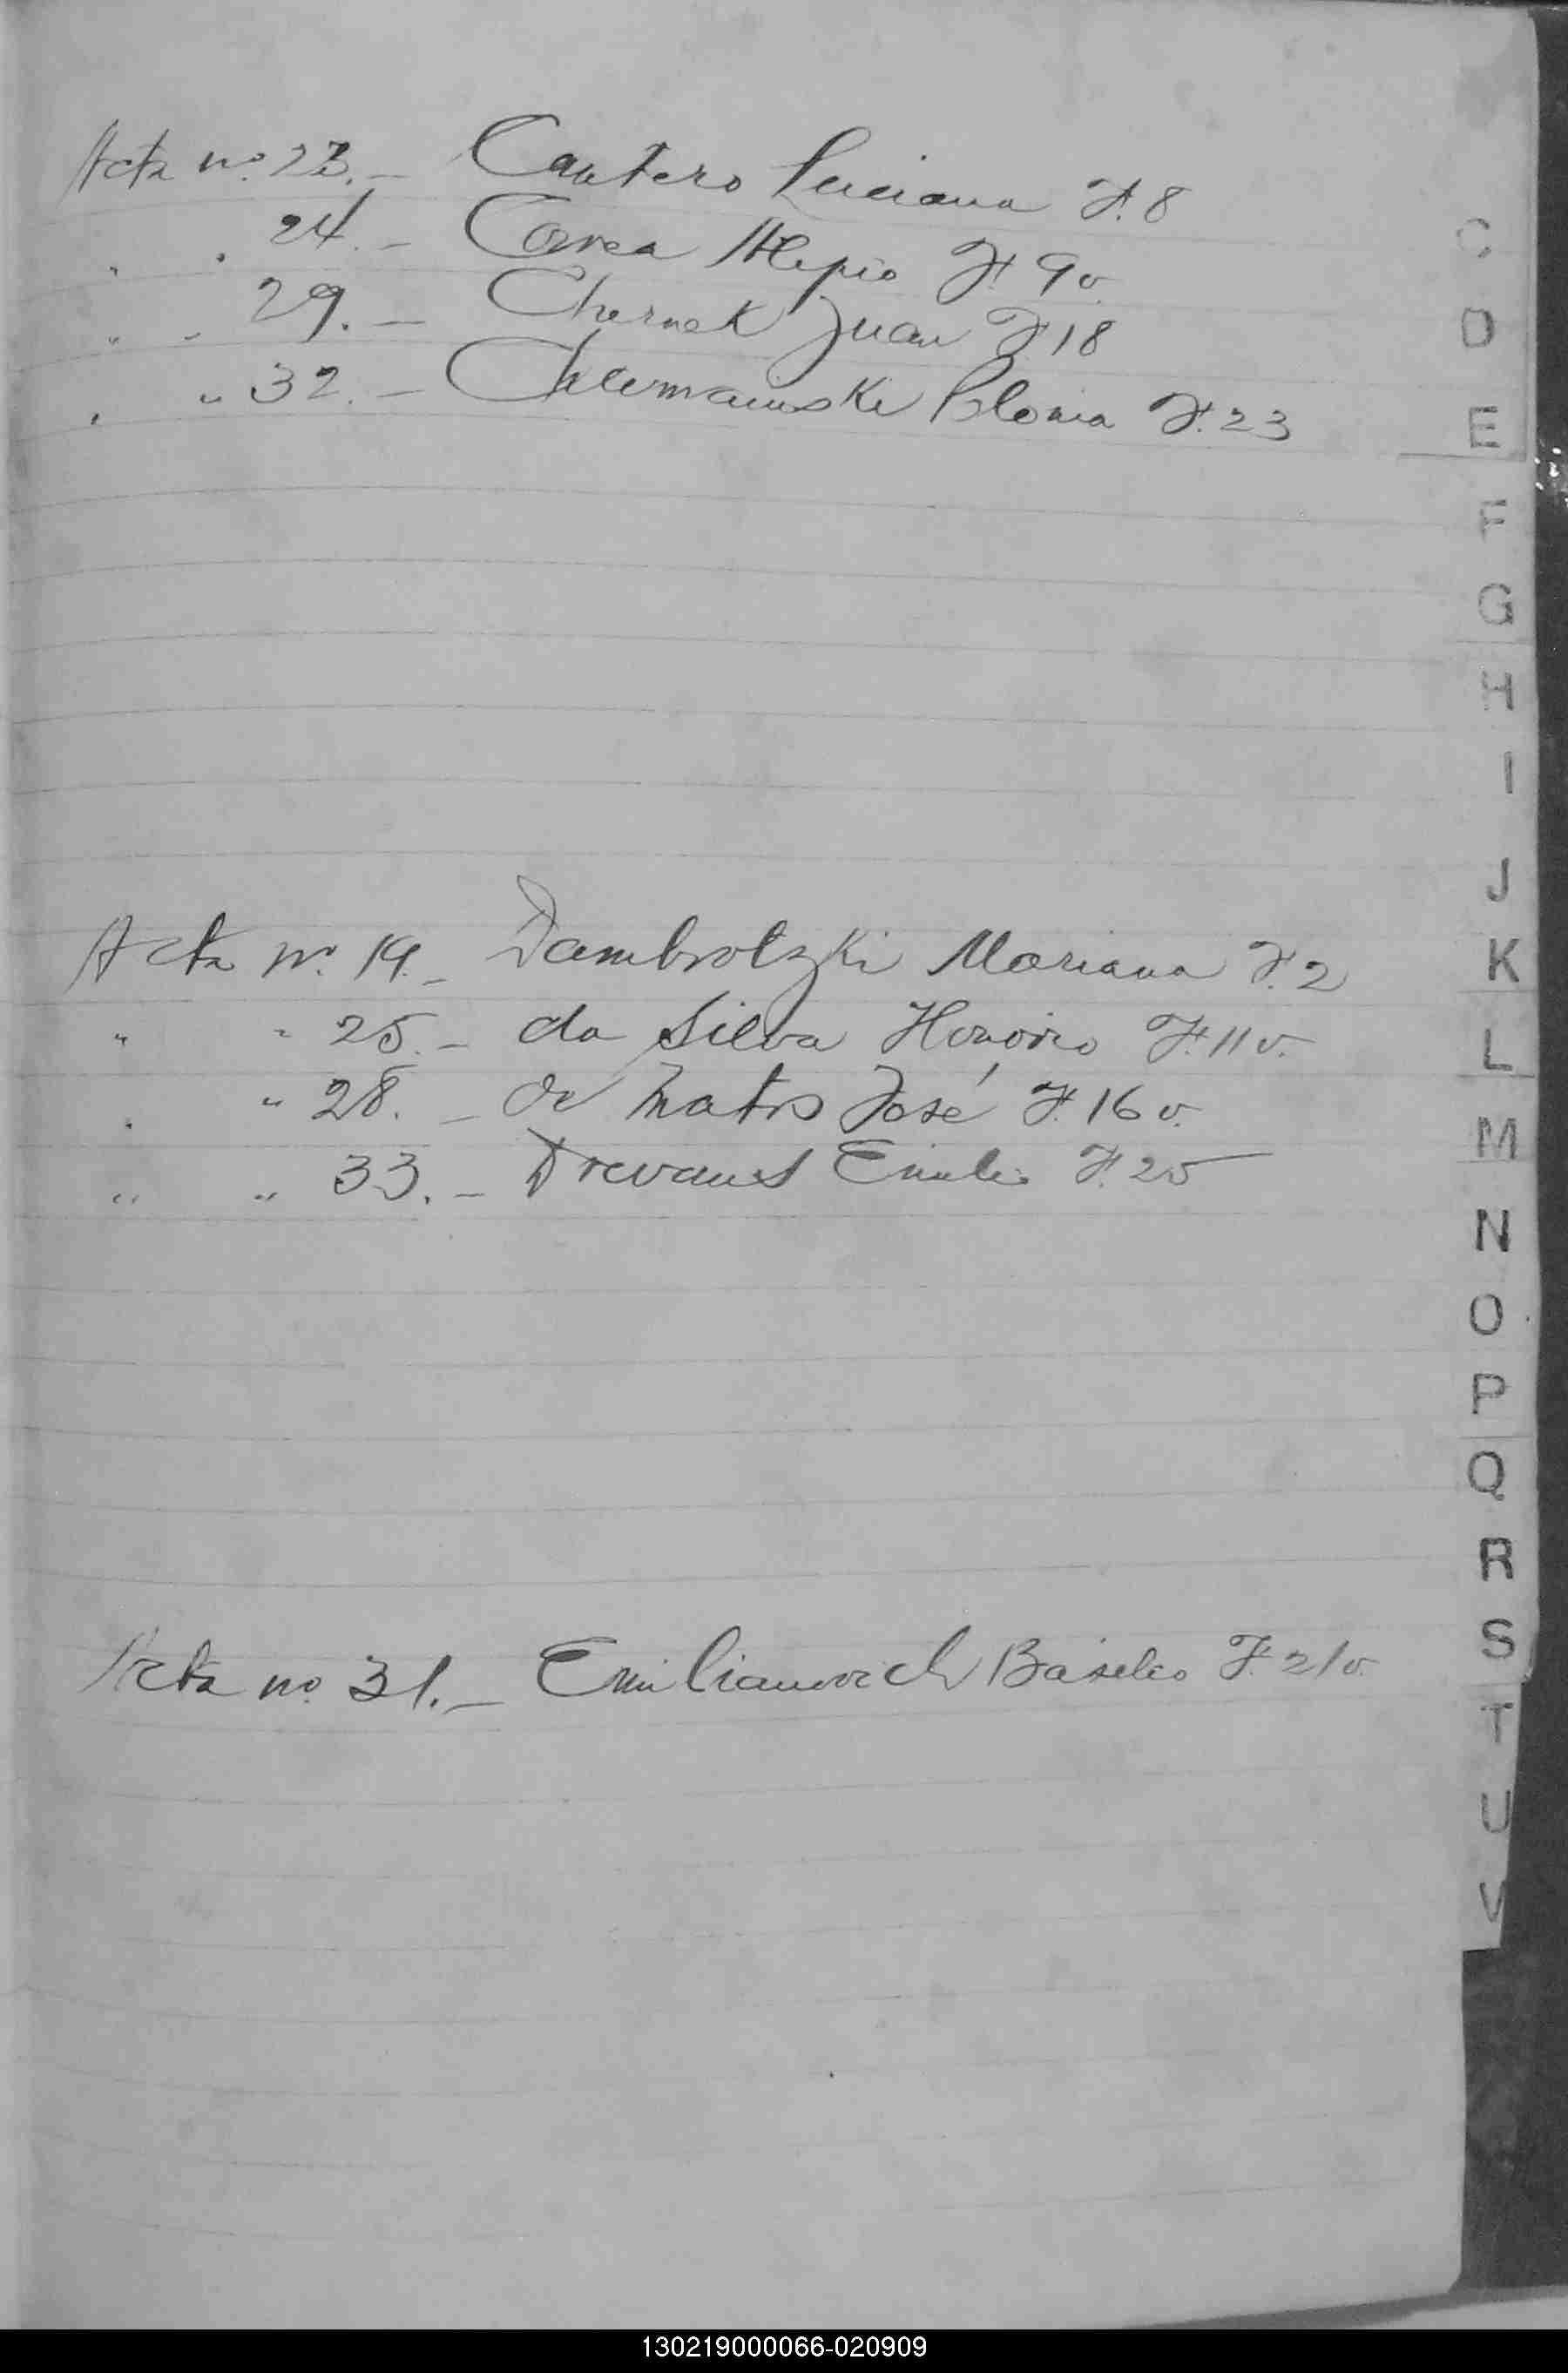 Acta nº 23.- Cautero Luciana F. 8
" " 24.- Correa Alepio F. 9v.
" " 29.- Chernek Juan F. 18
" " 32.- F. 23
Acta nº 19.- Dambrotzki Mariana F. 2
" " 25.- da Silva Honorio F. 11v.
" " 28.- de Matos José F. 16v.
" " 33.- Emilio F. 25
Acta nº 31.- Emilianovich Basilio F. 21v.
C
D
E
F
G
H
I
J
K
L
M
N
O
P
Q
R
S
T
U
V
130219000066-020909